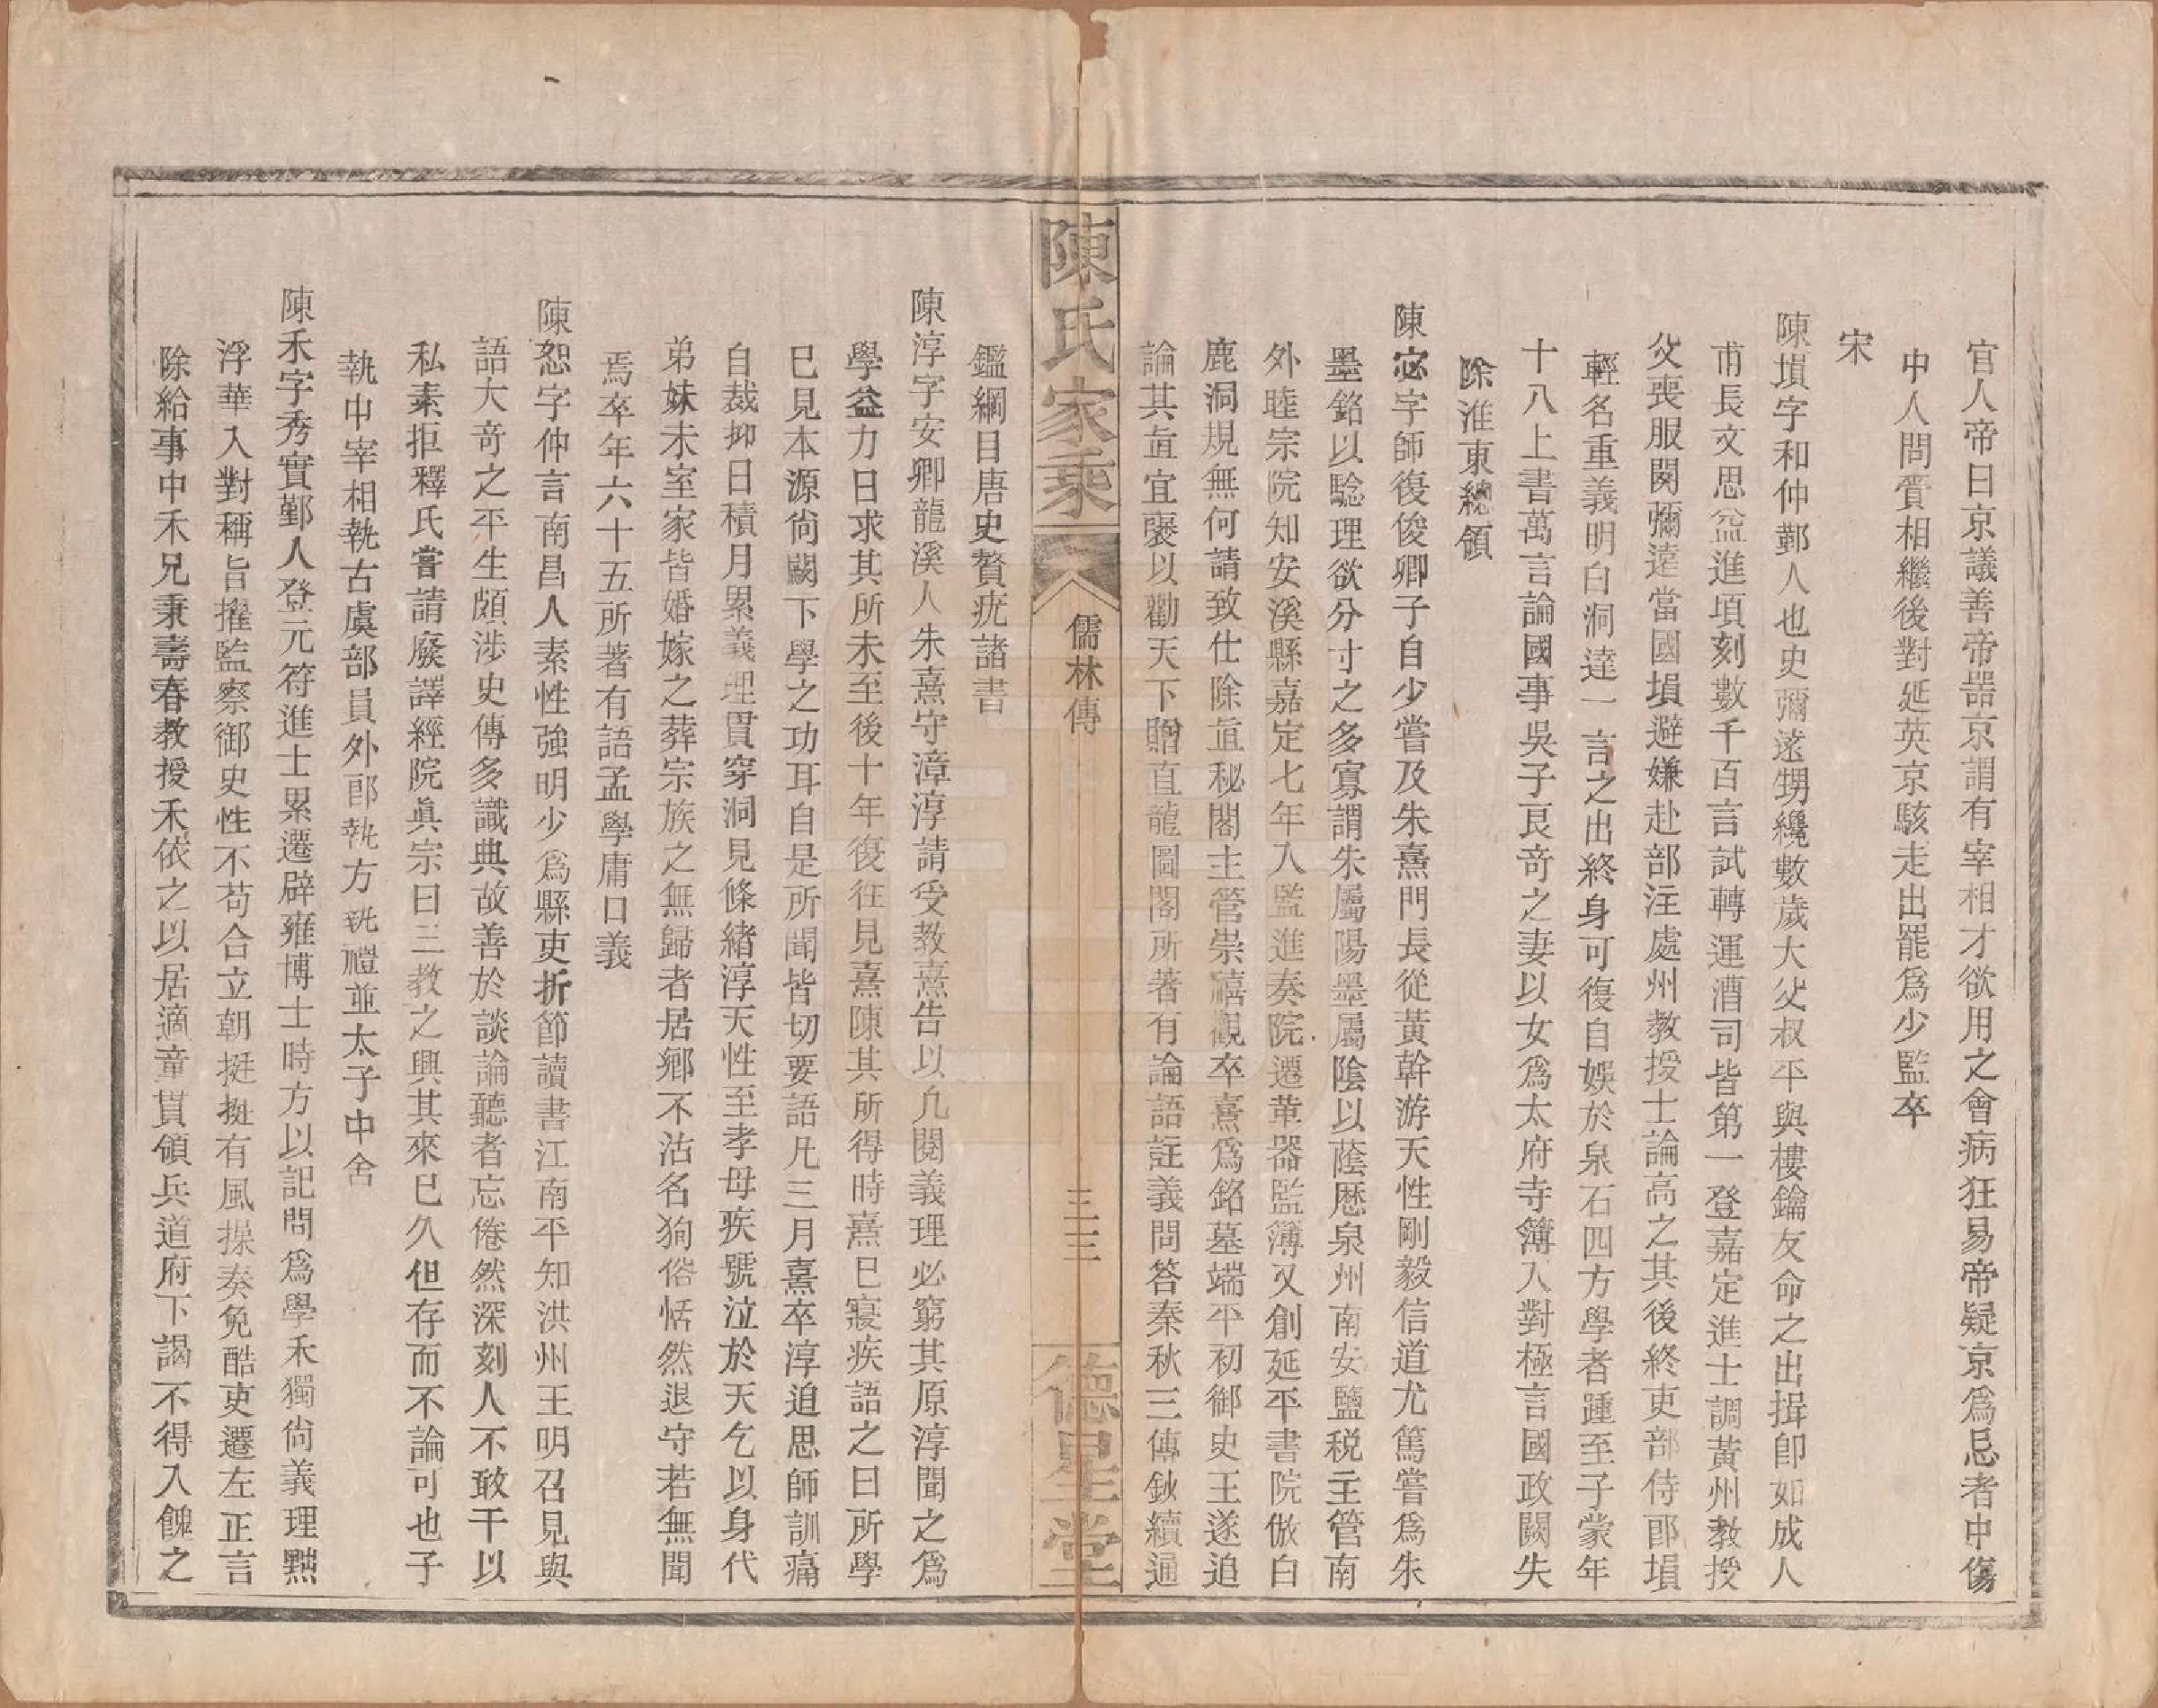 官人帝曰京議善帝器京謂有宰相才欲用之會病狂易帝疑京爲忌者中傷
中人問賫相繼後對延英京駭走出罷爲少監卒
宋
陳塤字和仲鄞人也史彌遠甥纔數歲大父叔平與樓鑰友命之出揖卽如成人
甫長文思益進頃刻數千百言試轉運漕司皆第一登嘉定進士調黃州教授
父喪服闋彌遠當國塤避嫌赴部注處州教授士論高之其後終吏部侍郎塤
輕名重義明白洞達一言之出終身可復自娛於泉石四方學者踵至子蒙年
十八上書萬言論國事吳子良奇之妻以女爲太府寺簿入對極言國政闕失
除淮東總領
陳宓字師復俊卿子自少嘗及朱熹門長從黃幹游天性剛毅信道尤篤嘗爲朱
墨銘以驗理欲分寸之多寡謂朱屬陽墨屬陰以蔭歷泉州南安鹽稅主管南
外睦宗院知安溪縣嘉定七年入監進奏院遷軍器監簿又創延平書院倣白
鹿洞規無何請致仕除直秘閣主管崇禧觀卒熹爲銘墓端平初御史王遂追
論其直宜褒以勸天下贈直龍圖閣所著有論語註義問答秦秋三傳鈥續通
陳氏家乘
儒林傳
三三
德星堂
鑑綱目唐史贅疣諸書
陳淳字安卿龍溪人朱熹守漳淳請受教熹告以凡閱義理必窮其原淳聞之爲
學益力日求其所未至後十年復往見熹陳其所得時熹已寢疾語之曰所學
已見本源尙闕下學之功耳自是所聞皆切要語凡三月熹卒淳追思師訓痛
自裁抑日積月累義理貫穿洞見條緒淳天性至孝母疾號泣於天乞以身代
弟妹未室家皆婚嫁之葬宗族之無歸者居鄉不沽名狥俗恬然退守若無聞
焉卒年六十五所著有語孟學庸口義
陳恕字仲言南昌人素性強明少爲縣吏折節讀書江南平知洪州王明召見與
語大奇之平生頗涉史傳多識典故善於談論聽者忘倦然深刻人不敢干以
私素拒釋氏嘗請廢譯經院眞宗曰三教之興其來已久但存而不論可也子
執中宰相執古虞部員外郎執方執禮並太子中舍
陳禾字秀實鄞人登元符進士累遷辟雍博士時方以記問爲學禾獨尙義理黜
浮華入對稱旨擢監察御史性不苟合立朝挺挺有風操奏免酷吏遷左正言
除給事中禾兄秉壽春教授禾依之以居適童貫領兵道府下謁不得入餽之